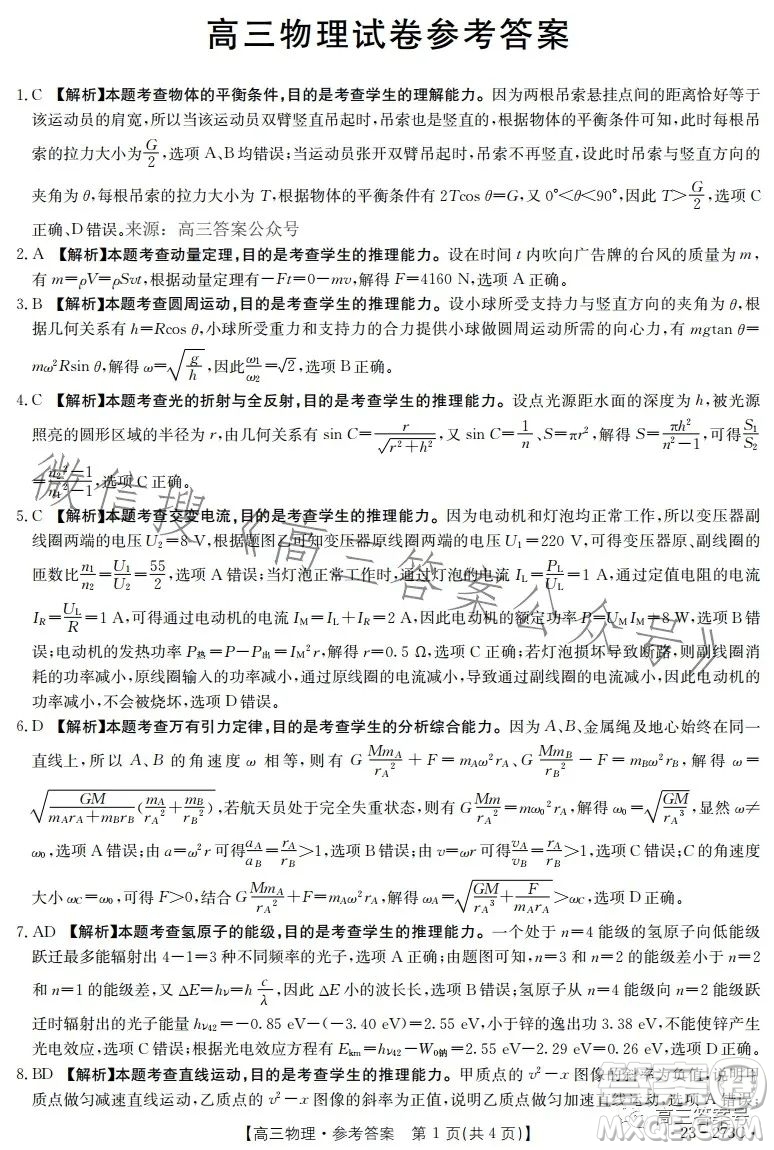 高三物理试卷参考答案
1.C 【解析】本题考查物体的平衡条件,目的是考查学生的理解能力。因为两根吊索悬挂点间的距离恰好等于
该运动员的肩宽,所以当该运动员双臂竖直吊起时,吊索也是竖直的,根据物体的平衡条件可知,此时每根吊
索的拉力大小为G/2,选项A、B均错误;当运动员张开双臂吊起时,吊索不再竖直,设此时吊索与竖直方向的
夹角为θ,每根吊索的拉力大小为T,根据物体的平衡条件有2Tcos θ=G,又0°<θ<90°,因此T>G/2,选项C
正确、D错误。来源:高三答案公众号
2.A 【解析】本题考查动量定理,目的是考查学生的推理能力。设在时间t内吹向广告牌的台风的质量为m,
有m=ρV=ρSvt,根据动量定理有-Ft=0-mv,解得F=4160 N,选项A正确。
3.B 【解析】本题考查圆周运动,目的是考查学生的推理能力。设小球所受支持力与竖直方向的夹角为θ,根
据几何关系有h=Rcos θ,小球所受重力和支持力的合力提供小球做圆周运动所需的向心力,有mgtan θ=
mω²Rsin θ,解得ω=√(g/h),因此ω₁/ω₂=√2,选项B正确。
4.C 【解析】本题考查光的折射与全反射,目的是考查学生的推理能力。设点光源距水面的深度为h,被光源
照亮的圆形区域的半径为r,由几何关系有sin C=r/√(r²+h²),又sin C=1/n、S=πr²,解得S=πh²/(n²-1),可得S₁/S₂
=(n₂²-1)/(n₁²-1),选项C正确。
5.C 【解析】本题考查交变电流,目的是考查学生的推理能力。因为电动机和灯泡均正常工作,所以变压器副
线圈两端的电压U₂=8 V,根据题图乙可知变压器原线圈两端的电压U₁=220 V,可得变压器原、副线圈的
匝数比n₁/n₂=U₁/U₂=55/2,选项A错误;当灯泡正常工作时,通过灯泡的电流I_L=P_L/U_L=1 A,通过定值电阻的电流
I_R=U_L/R=1 A,可得通过电动机的电流I_M=I_L+I_R=2 A,因此电动机的额定功率P=U_M I_M=8 W,选项B错
误;电动机的发热功率P热=P-P出=I_M²r,解得r=0.5 Ω,选项C正确;若灯泡损坏导致断路,则副线圈消
耗的功率减小,原线圈输入的功率减小,通过原线圈的电流减小,通过副线圈的电流减小,因此电动机的
功率减小,不会被烧坏,选项D错误。
6.D 【解析】本题考查万有引力定律,目的是考查学生的分析综合能力。因为A、B、金属绳及地心始终在同一
直线上,所以A、B的角速度ω相等,则有G Mm_A/r_A²+F=m_Aω²r_A、G Mm_B/r_B²-F=m_Bω²r_B,解得ω=
√(GM/(m_Ar_A+m_Br_B)(m_A/r_A²+m_B/r_B²)),若航天员处于完全失重状态,则有G Mm/r_A²=mω₀²r_A,解得ω₀=√(GM/r_A³),显然ω≠
ω₀,选项A错误;由a=ω²r可得a_A/a_B=r_A/r_B>1,选项B错误;由v=ωr可得v_A/v_B=r_A/r_B>1,选项C错误;C的角速度
大小ω_C=ω₀,可得F>0,结合G Mm_A/r_A²+F=m_Aω²r_A,解得ω_A=√(GM/r_A³+F/(m_Ar_A))>ω_C,选项D正确。
7.AD 【解析】本题考查氢原子的能级,目的是考查学生的推理能力。一个处于n=4能级的氢原子向低能级
跃迁最多能辐射出4-1=3种不同频率的光子,选项A正确;由题图可知,n=3和n=2的能级差小于n=2
和n=1的能级差,又ΔE=hν=h c/λ,因此ΔE小的波长长,选项B错误;氢原子从n=4能级向n=2能级跃
迁时辐射出的光子能量hν₄₂=-0.85 eV-(-3.40 eV)=2.55 eV,小于锌的逸出功3.38 eV,不能使锌产生
光电效应,选项C错误;根据光电效应方程有E_km=hν₄₂-W₀钠=2.55 eV-2.29 eV=0.26 eV,选项D正确。
8.BD 【解析】本题考查直线运动,目的是考查学生的推理能力。甲质点的v²-x图像的斜率为负值,说明甲
质点做匀减速直线运动,乙质点的v²-x图像的斜率为正值,说明乙质点做匀加速直线运动,
【高三物理·参考答案 第1页(共4页)】
·23-273C·
微信搜《高三答案公众号》
高三答案号
MXQE.COM